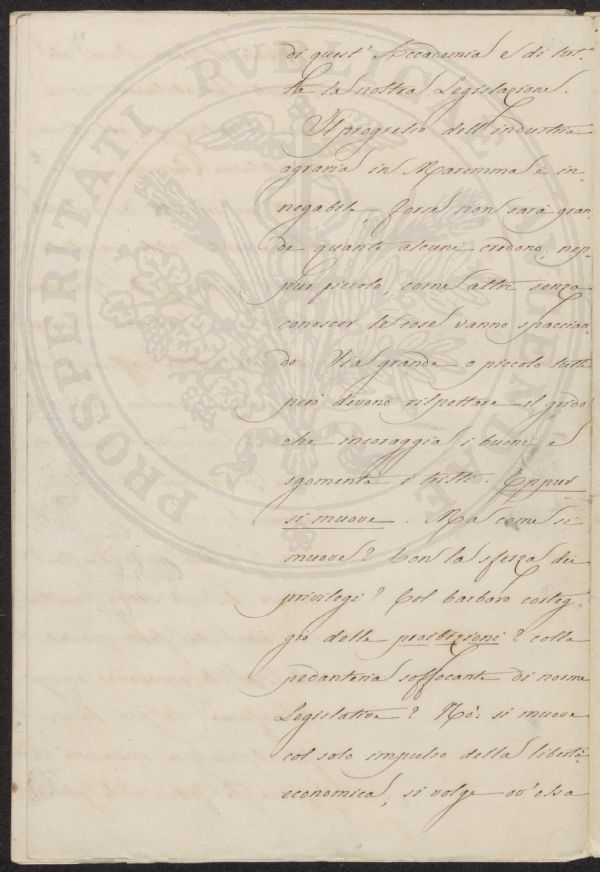 di quest' Accademia e di tut-
ta la nostra Legislazione.
Il progresso dell'industria
agraria in Maremma è in-
negabile, forse non sarà gran-
de quanto alcuni credono, nep-
pur piccolo, come altri senza
conoscer le cose vanno spaccian-
do. Sia grande o piccolo tutti
però devono rispettare il grido
che incoraggia i buoni e
sgomenta i tristi. Eppur
si muove. Ma come si
muove? Con la sferza dei
privilegi? Col barbaro corteg-
gio delle proibizioni? colla
pedanteria soffocante di norme
Legislative? Nò: si muove
col solo impulso della libertà
economica, si volge ov'essa
PROSPERITATI PUBLICAE AUGENDAE